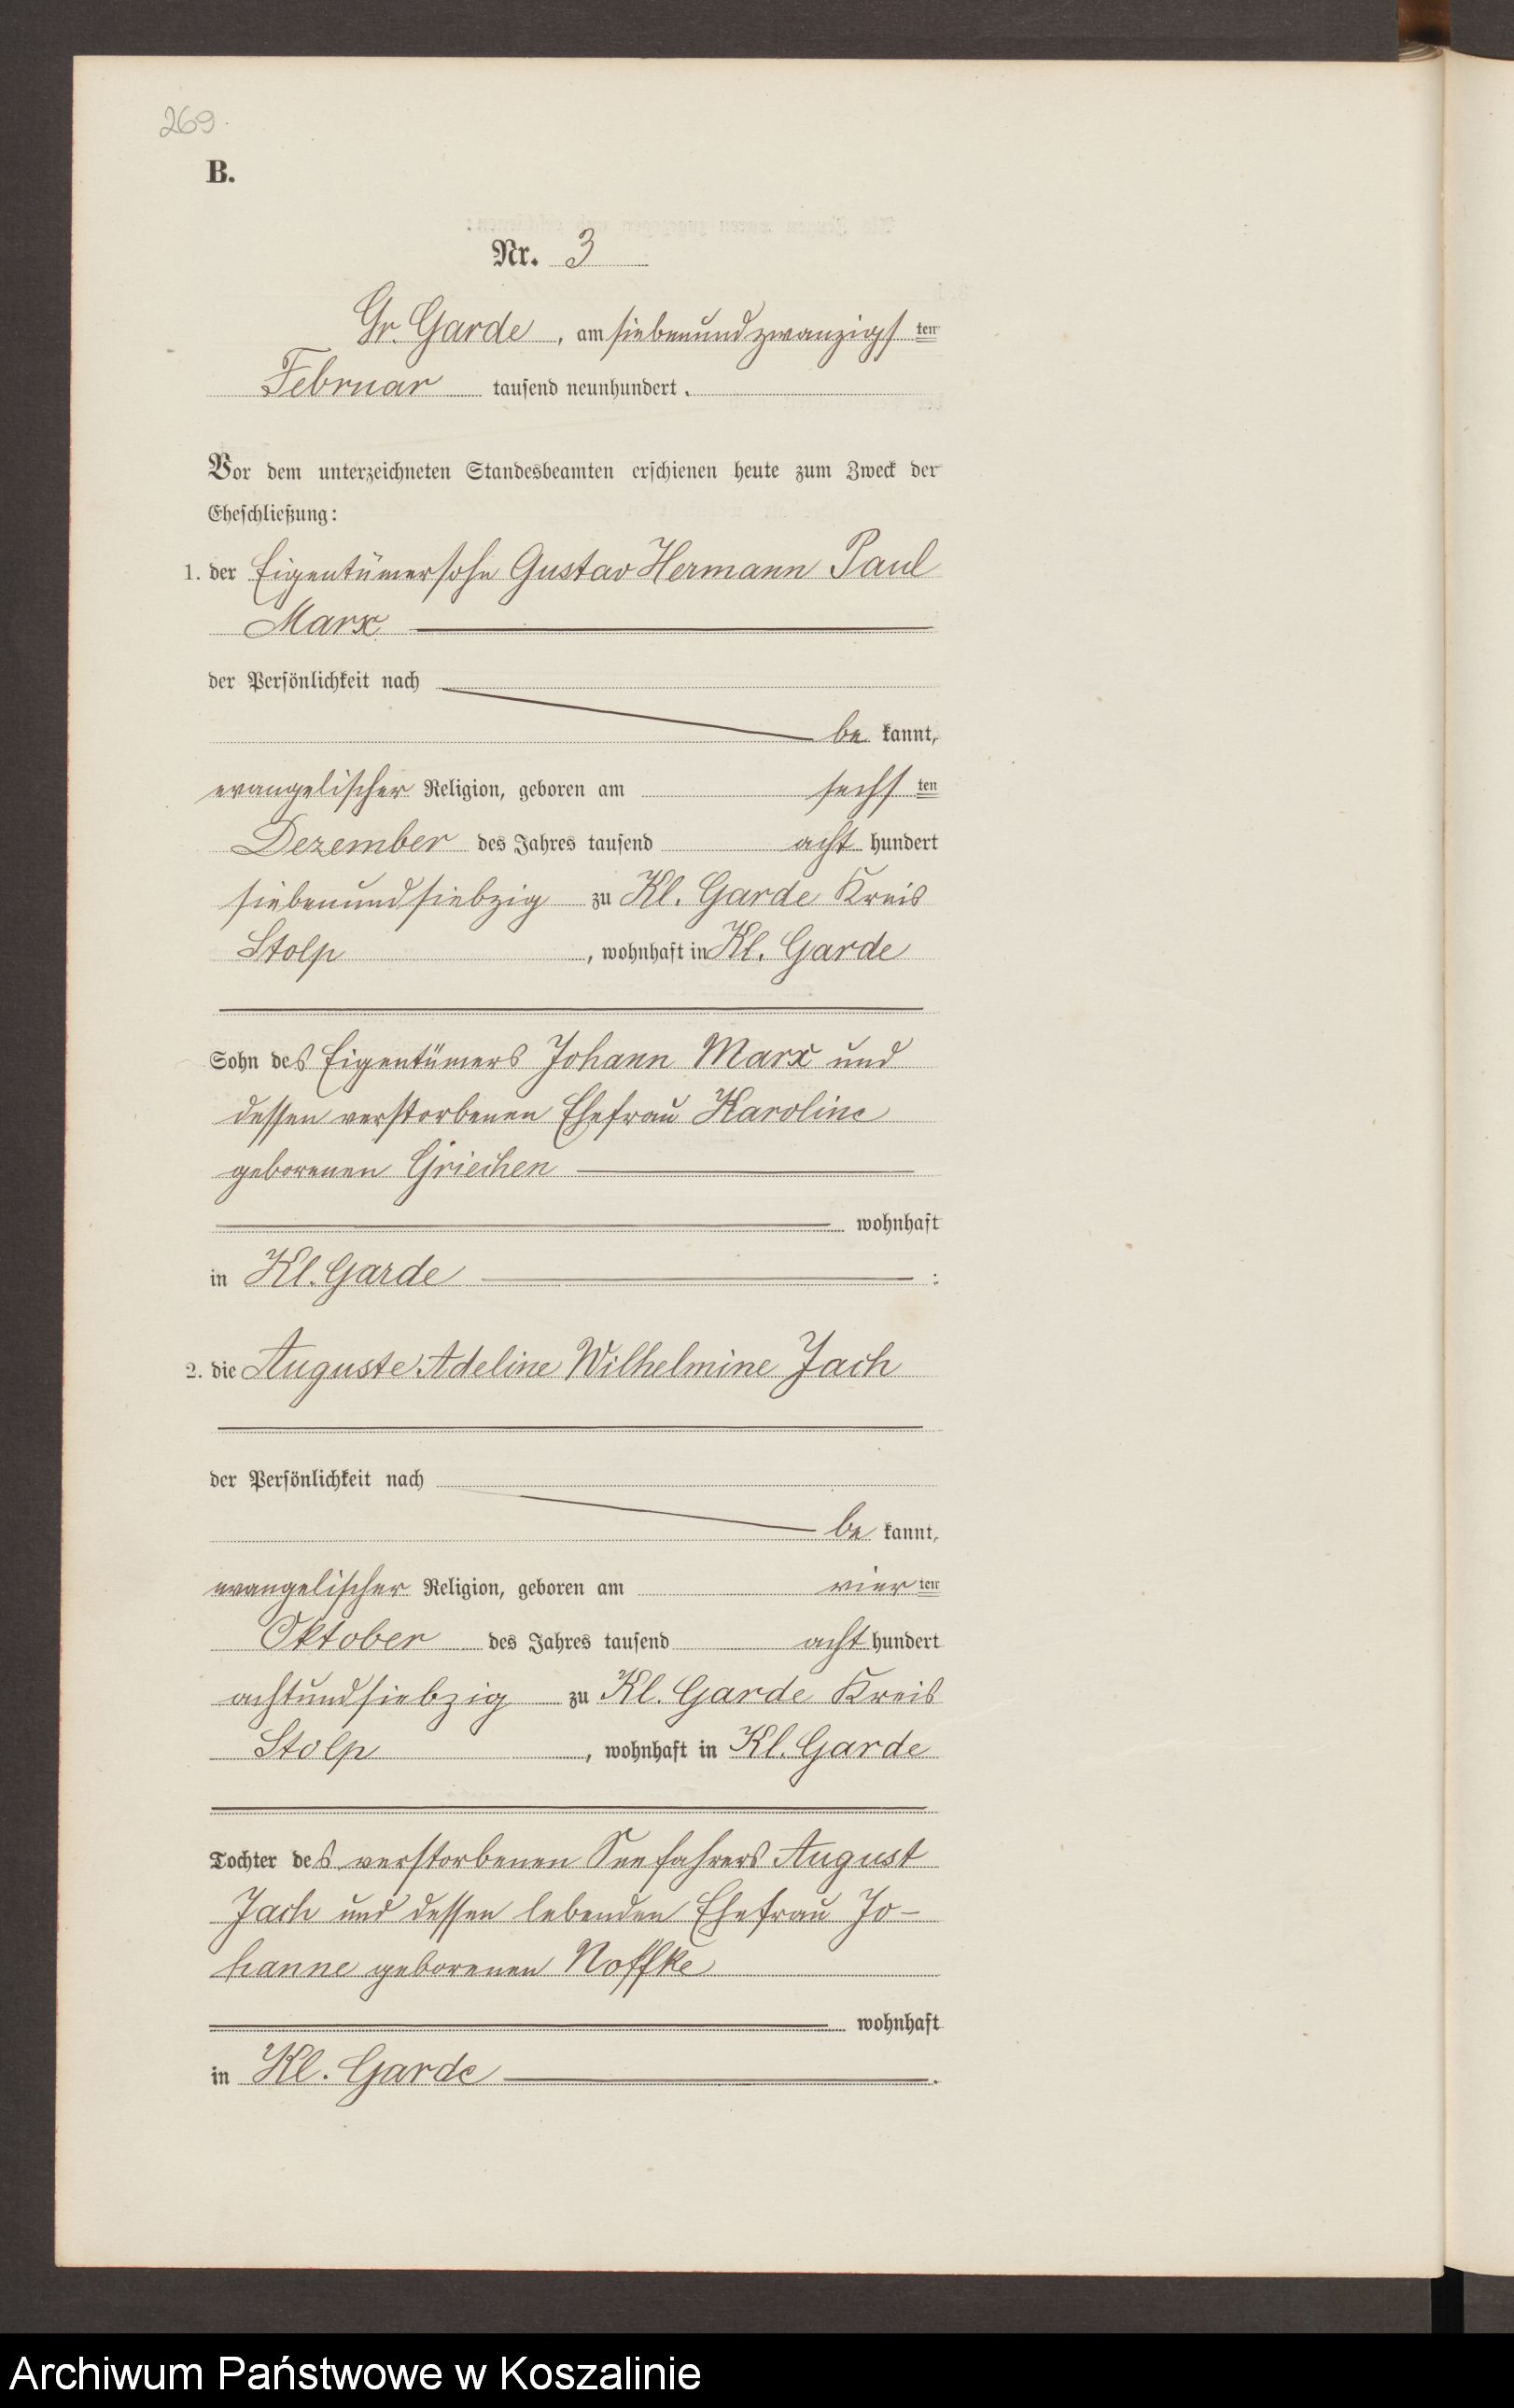 269.
B.
Nr. 3
Gr. Garde, am siebenundzwanzigsten
Februar tausend neunhundert.
Vor dem unterzeichneten Standesbeamten erschienen heute zum Zweck der
Eheschließung:
1. der Eigentümersohn Gustav Hermann Paul
Marx
der Persönlichkeit nach
be kannt,
evangelischer Religion, geboren am sechsten
Dezember des Jahres tausend acht hundert
siebenundsiebzig zu Kl. Garde Kreis
Stolp, wohnhaft in Kl. Garde
Sohn des Eigentümers Johann Marx und
dessen verstorbenen Ehefrau Karoline
geborenen Griechen
wohnhaft
in Kl. Garde :
2. die Auguste Adeline Wilhelmine Jach
der Persönlichkeit nach
be kannt,
evangelischer Religion, geboren am vierten
Oktober des Jahres tausend acht hundert
achtundsiebzig zu Kl. Garde Kreis
Stolp, wohnhaft in Kl. Garde
Tochter des verstorbenen Seefahrers August
Jach und dessen lebenden Ehefrau Jo-
hanne geborenen Noffke
wohnhaft
in Kl. Garde.
Archiwum Państwowe w Koszalinie